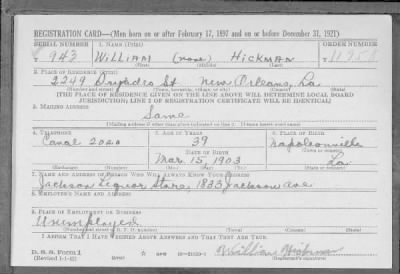 REGISTRATION CARD—(Men born on or after February 17, 1897 and on or before December 31, 1921)
SERIAL NUMBER 1. NAME (Print) ORDER NUMBER
943 William (none) Hickman
(First) (Middle) (Last)
2. PLACE OF RESIDENCE (Print)
2249 St New Orleans, La
(Number and street) (Town, township, village, or city) (County) (State)
[THE PLACE OF RESIDENCE GIVEN ON THE LINE ABOVE WILL DETERMINE LOCAL BOARD
JURISDICTION; LINE 2 OF REGISTRATION CERTIFICATE WILL BE IDENTICAL]
3. MAILING ADDRESS
Same
[Mailing address if other than place indicated on line 2. If same insert word same]
4. TELEPHONE 5. AGE IN YEARS 6. PLACE OF BIRTH
Canal 2020 39 Napoleonville
DATE OF BIRTH (Town or county)
Mar. 15, 1903 La
(Exchange) (Number) (Mo.) (Day) (Yr.) (State or country)
7. NAME AND ADDRESS OF PERSON WHO WILL ALWAYS KNOW YOUR ADDRESS
Jackson Liquor Store, 1833 Jackson Ave
8. EMPLOYER'S NAME AND ADDRESS
9. PLACE OF EMPLOYMENT OR BUSINESS
Unemployed
(Number and street or R. F. D. number) (Town) (County) (State)
I AFFIRM THAT I HAVE VERIFIED ABOVE ANSWERS AND THAT THEY ARE TRUE.
D. S. S. Form 1
(Revised 1-1-42) William Hickman
(Registrant's signature)